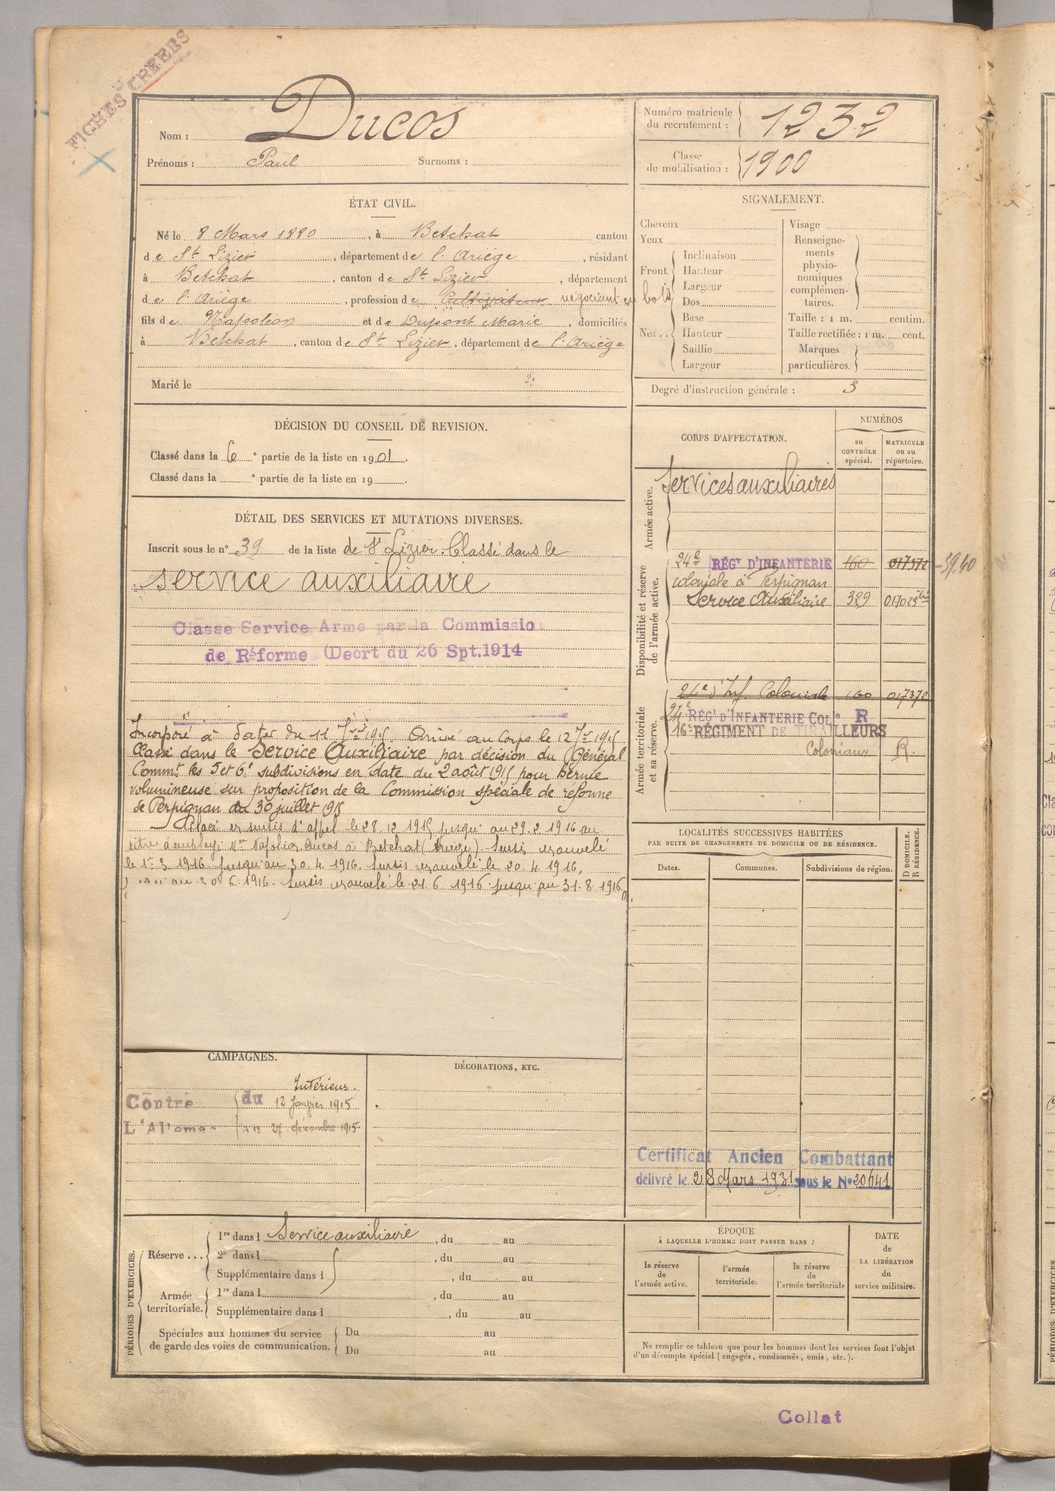 FICHES CRÉÉES
Nom : Ducos
Prénoms : Paul Surnoms :
Numéro matricule du recrutement : 1232
Classe de mobilisation : 1900
ÉTAT CIVIL.
Né le 8 Mars 1880, à Betchat canton
de St Lizier, département de l'Ariège, résidant
à Betchat, canton de St Lizier, département
de l'Ariège, profession de Cultivateur négociant en bois
fils de Napoléon et de Dupont Marie, domiciliés
à Betchat, canton de St Lizier, département de l'Ariège
Marié le
SIGNALEMENT.
Cheveux
Yeux
Front
Inclinaison
Hauteur
Largeur
Nez
Dos
Base
Hauteur
Saillie
Largeur
Visage
Renseignements physionomiques complémentaires.
Taille : 1 m. centim.
Taille rectifiée : 1 m. cent.
Marques particulières.
Degré d'instruction générale : 3
DÉCISION DU CONSEIL DE REVISION.
Classé dans la 6e partie de la liste en 1901.
Classé dans la e partie de la liste en 19
DÉTAIL DES SERVICES ET MUTATIONS DIVERSES.
Inscrit sous le n° 39 de la liste de St Lizier Classé dans le
service auxiliaire
Classe Service Arme par la Commissio
de Réforme (Decrt du 26 Spt.1914
Incorporé à dater du 11 Arrivé au Corps le 12
Classé dans le Service Auxiliaire par décision du Général
Commt les 5 et 6e subdivisions en date du 2 août 1915 pour hernie
volumineuse sur proposition de la Commission spéciale de réforme
de Perpignan du 30 juillet 1915
Placé en sursis d'appel le 28.12.1915 jusqu'au 29.2.1916 au
titre employé Mr Napoléon Ducos à Betchat (Ariège). Sursis renouvelé
le 1.3.1916 jusqu'au 30.4.1916. Sursis renouvelé le 20.4.1916,
jusqu'au 30.6.1916. Sursis renouvelé le 21.6.1916 jusqu'au 31.8.1916
CORPS D'AFFECTATION.
NUMÉROS
au CONTRÔLE spécial.
MATRICULE ou au répertoire.
Armée active.
Services auxiliaires
Disponibilité et réserve de l'armée active.
24e RÉGt D'INFANTERIE 160 017372
coloniale à Perpignan
Service Auxiliaire 329 017023bis
Armée territoriale et sa réserve.
24e d'Inf. Coloniale 160 017372
24e RÉGt D'INFANTERIE COLle R
16e RÉGIMENT DE TIRAILLEURS
Coloniaux R.
LOCALITÉS SUCCESSIVES HABITÉES
PAR SUITE DE CHANGEMENTS DE DOMICILE OU DE RÉSIDENCE.
Dates. Communes. Subdivisions de région.
D DOMICILE. R RÉSIDENCE.
CAMPAGNES.
Intérieur.
Contre L'Allema du 12 janvier 1915
au 27 décembre 1915
DÉCORATIONS, ETC.
Certificat Ancien Combattant
délivré le 28 Mars 1931 sous le N° 20641
PÉRIODES D'EXERCICES.
Réserve...
1re dans l Service auxiliaire, du au
2e dans l, du au
Supplémentaire dans l, du au
Armée territoriale.
1re dans l, du au
Supplémentaire dans l, du au
Spéciales aux hommes du service
de garde des voies de communication.
Du au
Du au
ÉPOQUE
À LAQUELLE L'HOMME DOIT PASSER DANS :
la réserve de l'armée active.
l'armée territoriale.
la réserve de l'armée territoriale
DATE de LA LIBÉRATION du service militaire.
Ne remplir ce tableau que pour les hommes dont les services font l'objet
d'un décompte spécial (engagés, condamnés, omis, etc.).
Collat